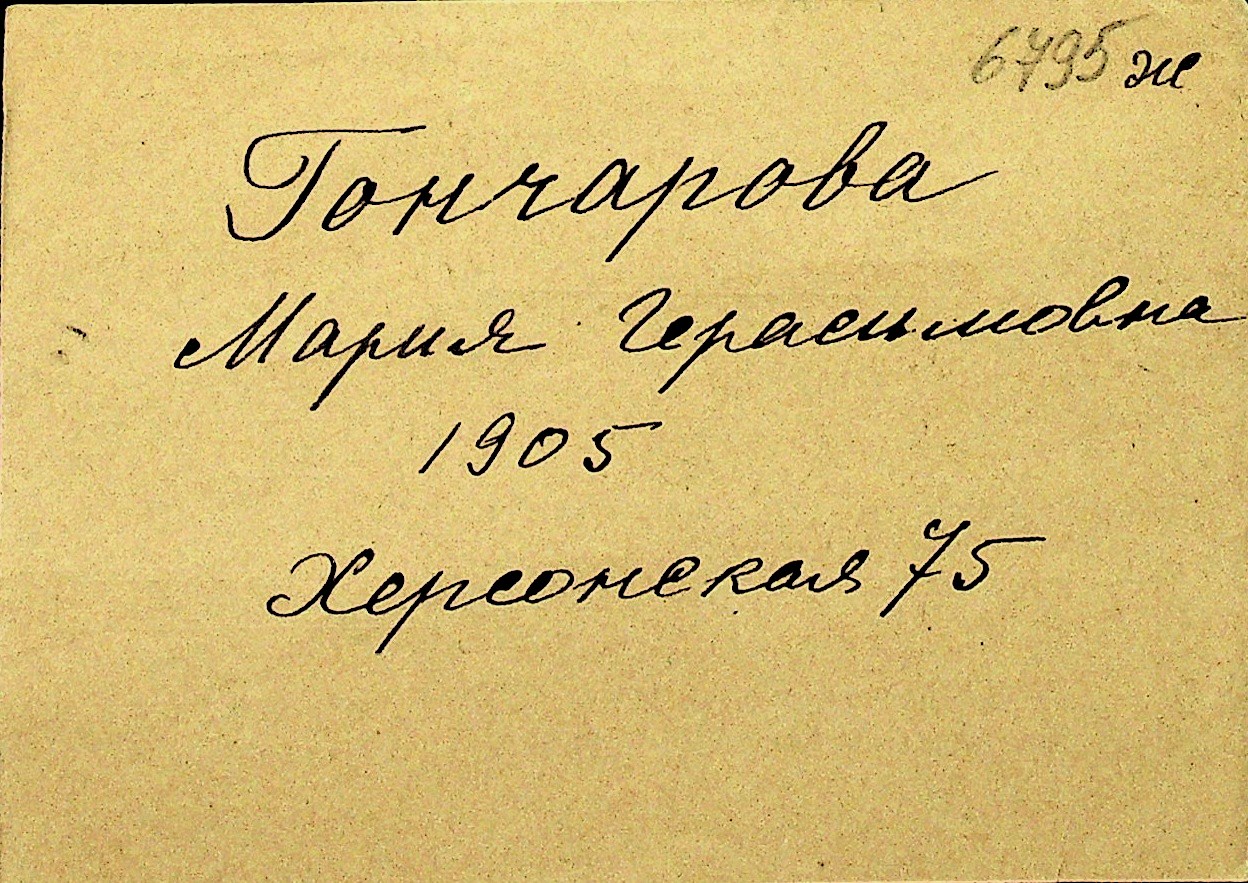 6795 ж
Гончарова
Мария Герасимовна
1905
Херсонская 75